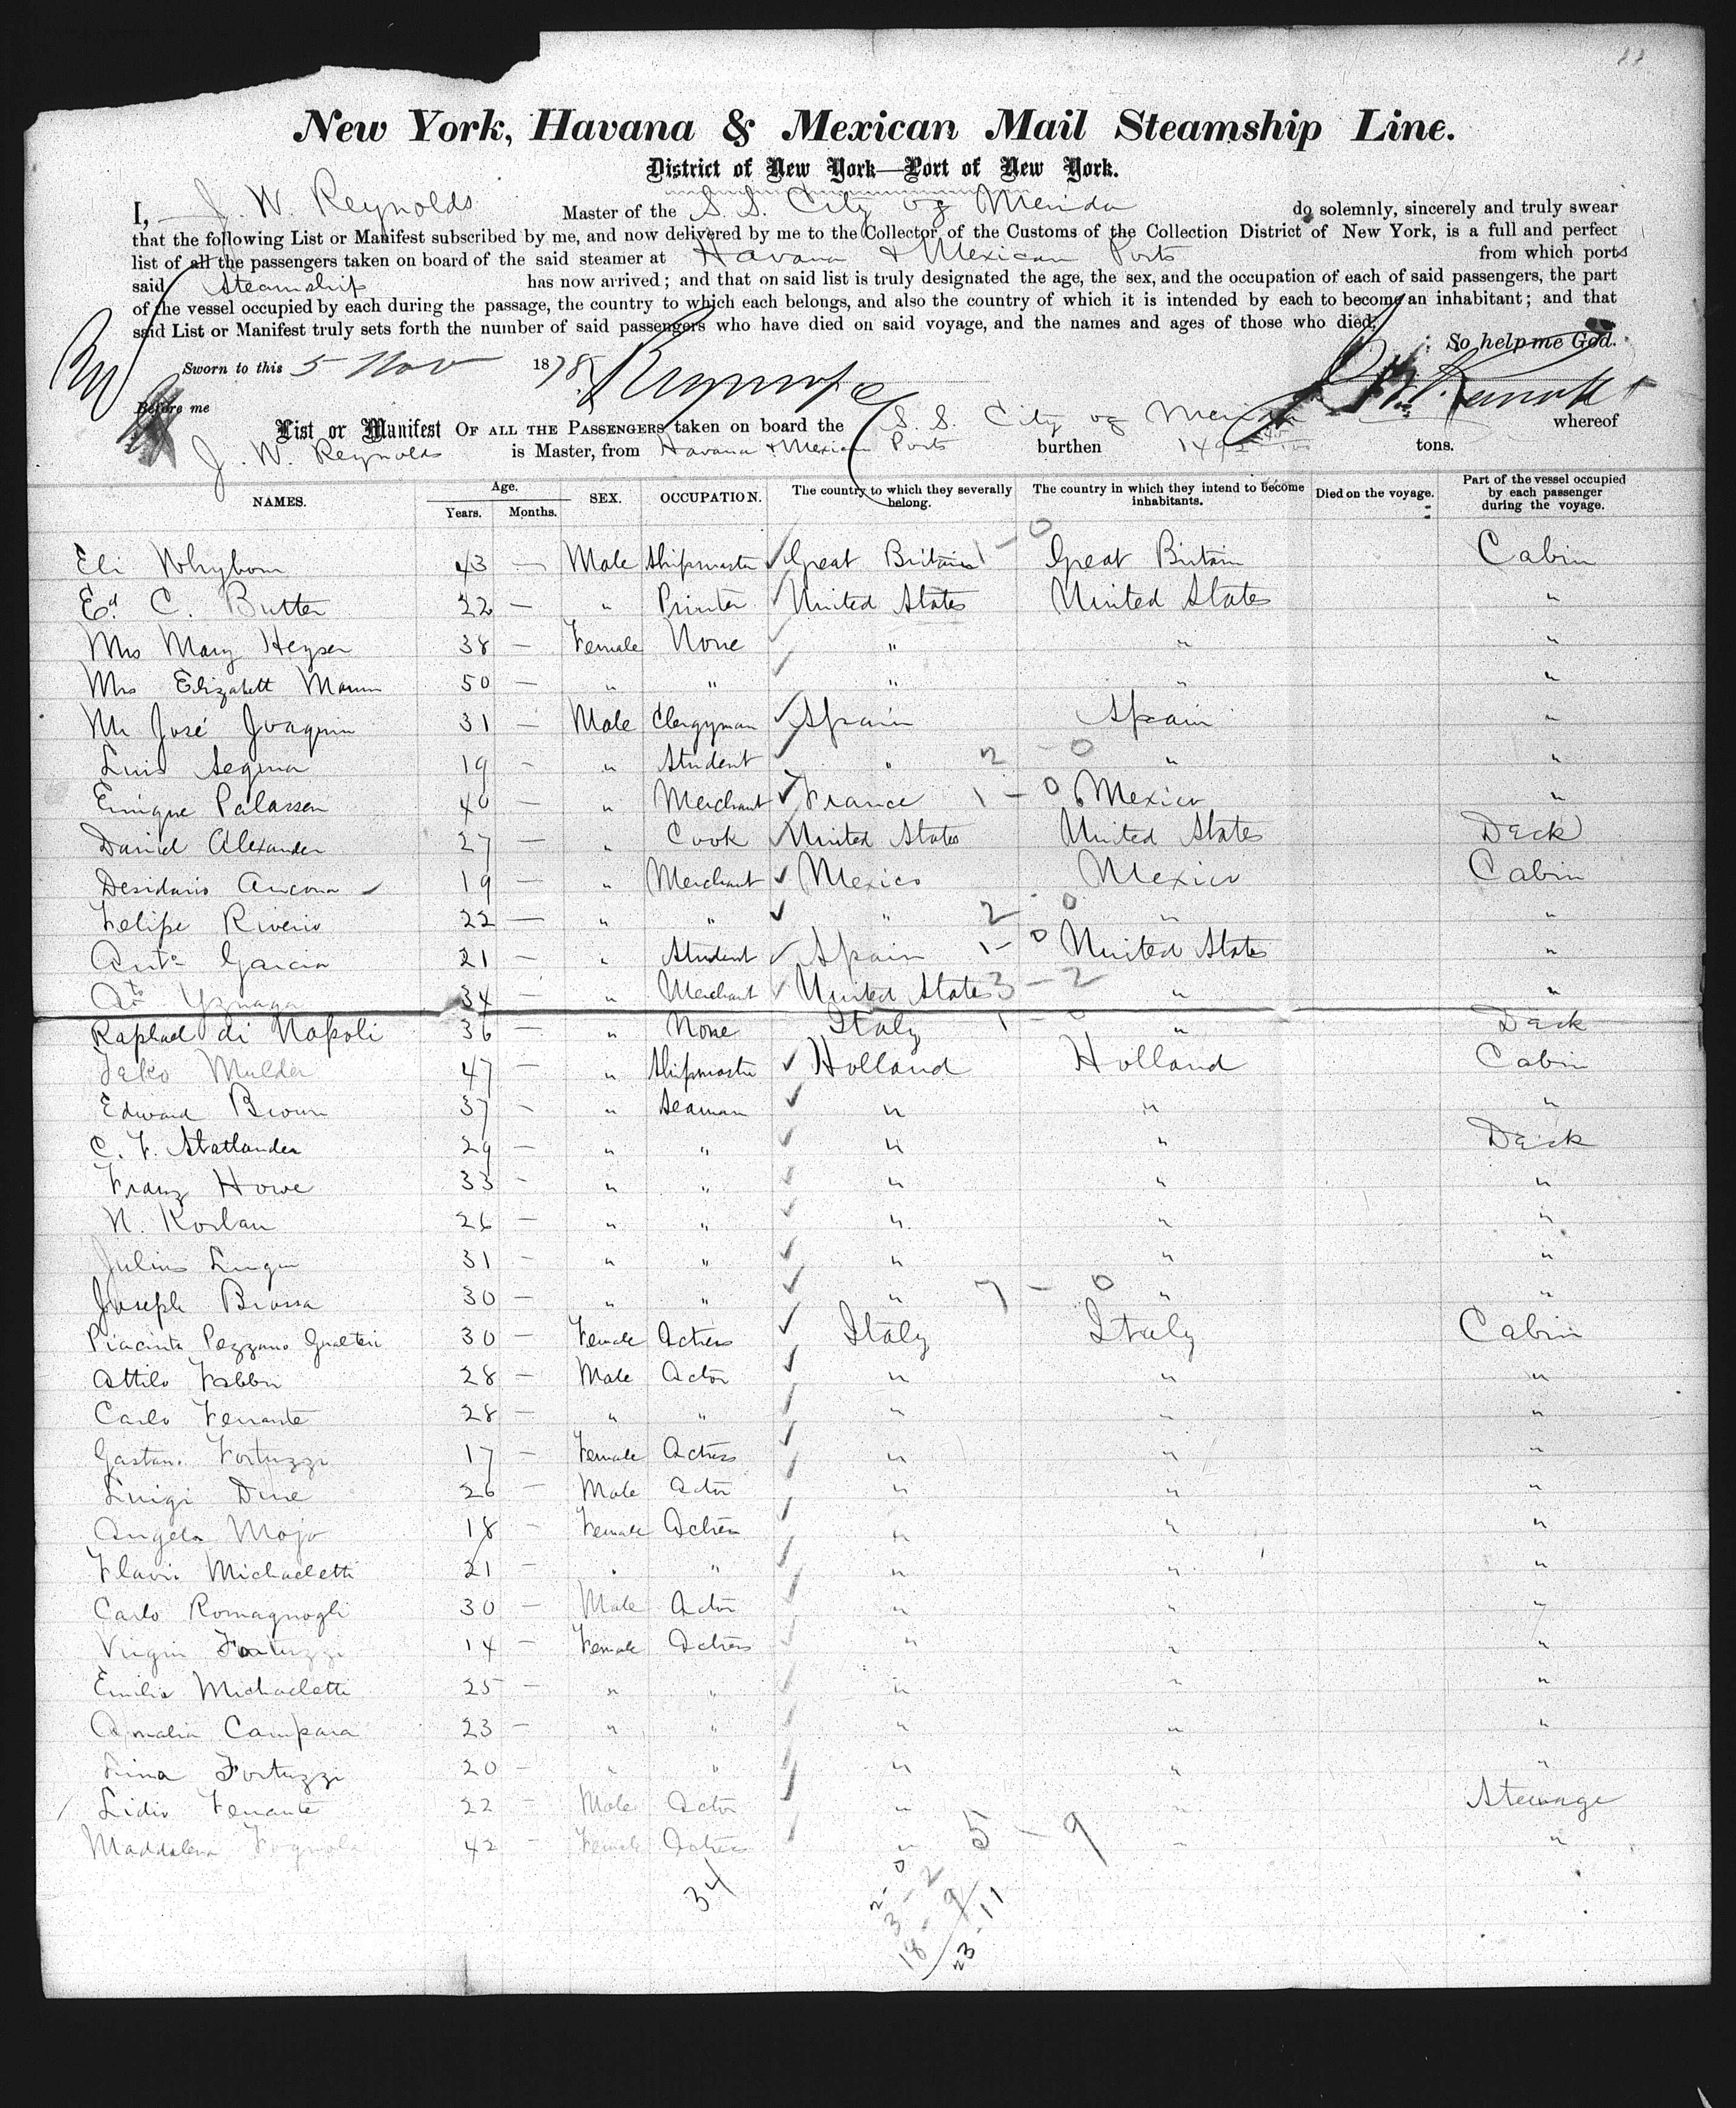 New York, Havana & Mexican Mail Steamship Line.
District of New York—Port of New York.
I, J. W. Reynolds Master of the S. S. City of Merida do solemnly, sincerely and truly swear
that the following List or Manifest subscribed by me, and now delivered by me to the Collector of the Customs of the Collection District of New York, is a full and perfect
list of all the passengers taken on board of the said steamer at Havana & Mexican Ports from which ports
said Steamship has now arrived; and that on said list is truly designated the age, the sex, and the occupation of each of said passengers, the part
of the vessel occupied by each during the passage, the country to which each belongs, and also the country of which it is intended by each to become an inhabitant; and that
said List or Manifest truly sets forth the number of said passengers who have died on said voyage, and the names and ages of those who died.
So help me God.
Sworn to this 5 Nov 1878
Before me
List or Manifest OF ALL THE PASSENGERS taken on board the S. S. City of Merida whereof
J. W. Reynolds is Master, from Havana & Mexican Ports burthen tons.
NAMES. Age. Years. Months. SEX. OCCUPATION. The country to which they severally belong. The country in which they intend to become inhabitants. Died on the voyage. Part of the vessel occupied by each passenger during the voyage.
Eli Whyborn 43 — Male Shipmaster Great Britain 1 - 0 Great Britain Cabin
Ed. C. Butter 22 — " Printer United States United States "
Mrs Mary Heyser 38 — Female None " " "
Mrs Elizabett Mann 50 — " " " " "
Mr José Joaquin 31 — Male Clergyman Spain Spain "
Luis Segura 19 — " Student " 2 - 0 " "
Enrique Palassen 40 — " Merchant France 1 - 0 Mexico "
David Alexander 27 — " Cook United States United States Deck
Desidario Ancona 19 — " Merchant Mexico Mexico Cabin
Felipe Riverio 22 — " " " 2 - 0 " "
Anto Garcia 21 — " Student Spain 1 - 0 United States "
Yznaga 34 — " Merchant United States 3 - 2 " "
Raphael di Napoli 36 — " None Italy 1 - 0 " Deck
Mulder 47 — " Shipmaster Holland Holland Cabin
Edward Brown 37 — " Seaman " " "
C. F. Statlander 29 — " " " " Deck
Franz Howe 33 - " " " " "
N. Korlan 26 — " " " " "
Julius 31 — " " " " "
Joseph Brossa 30 — " " " 7 - 0 " "
Piacinta Pezzano Gualteri 30 — Female Actress Italy Italy Cabin
Attilo Fabbri 28 — Male Actor " " "
Carlo Ferrante 28 — " " " " "
Gastano Fortuzzi 17 — Female Actress " " "
Luigi Duse 26 — Male Actor " " "
Angela Mojo 18 — Female Actress " " "
Flavi Michaeletti 21 — " " " " "
Carlo Romagnogli 30 — Male Actor " " "
Virgin Fortuzzi 14 — Female Actress " " "
Emilia Michaeletti 25 — " " " " "
Amalia Campara 23 — " " " " "
Fortuzzi 20 — " " " " "
Lidio Ferrante 22 — Male Actor " " Steerage
Maddalena Fognola 42 — Female Actress " 5 - 9 " "
34
2 - 0
3 - 2
18 - 9
23 - 11